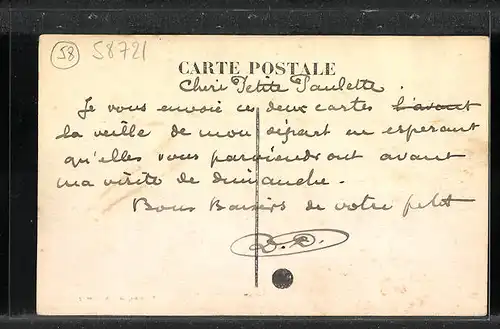 58 58721
CARTE POSTALE
Cheri Petite Paulette.
Je vous envoie ces deux cartes l'avant
la veille de mon départ en esperant
qu'elles vous parviendront avant
ma visite de dimanche.
Bons Baisers de votre petit